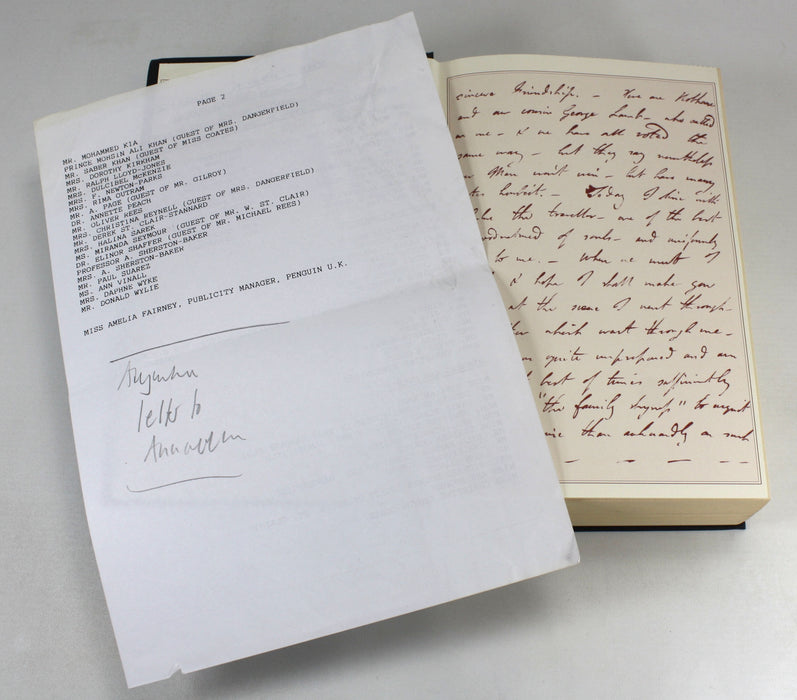 PAGE 2
MR. MOHAMMED KIA
PRINCE MOHSIN ALI KHAN (GUEST OF MRS. DANGERFIELD)
MR. SABER KHAN (GUEST OF MISS COATES)
MRS. DOROTHY KIRKHAM
MR. RALPH LLOYD-JONES
MRS. DULCIBEL MCKENZIE
MRS. F. NEWTON-PARKS
MRS. RIMA OUTRAM
MR. A. PAGE (GUEST OF MR. GILROY)
DR. ANNETTE PEACH
MR. OLIVER REES
MRS. CHRISTINA REYNELL (GUEST OF MRS. DANGERFIELD)
MR. DEREK ST. CLAIR-STANNARD
MRS. HALINA SAREK
MS. MIRANDA SEYMOUR (GUEST OF MR. W. ST. CLAIR)
DR. ELINOR SHAFFER (GUEST OF MR. MICHAEL REES)
PROFESSOR A. SHERSTON-BAKER
MRS. A. SHERSTON-BAKER
MR. PAUL SUAREZ
MS. ANN VINALL
MRS. DAPHNE WYKE
MR. DONALD WYLIE
MISS AMELIA FAIRNEY, PUBLICITY MANAGER, PENGUIN U.K.
Augusta
letter to
Annabella
sincere friendship. – Here are Hobhouse
and our cousin George Lamb – who called
on me – & we have all voted the
same way – but they say nevertheless
our Man won't win – but have many
votes howbeit. – Today I dine with
the traveller – one of the best
of souls – and uniformly
to me. – When we meet of
& hope I shall make you
at the scene I went through
which went through me –
quite unprepared and am
best of times sufficiently
"the family shyness" to
than awkwardly on such